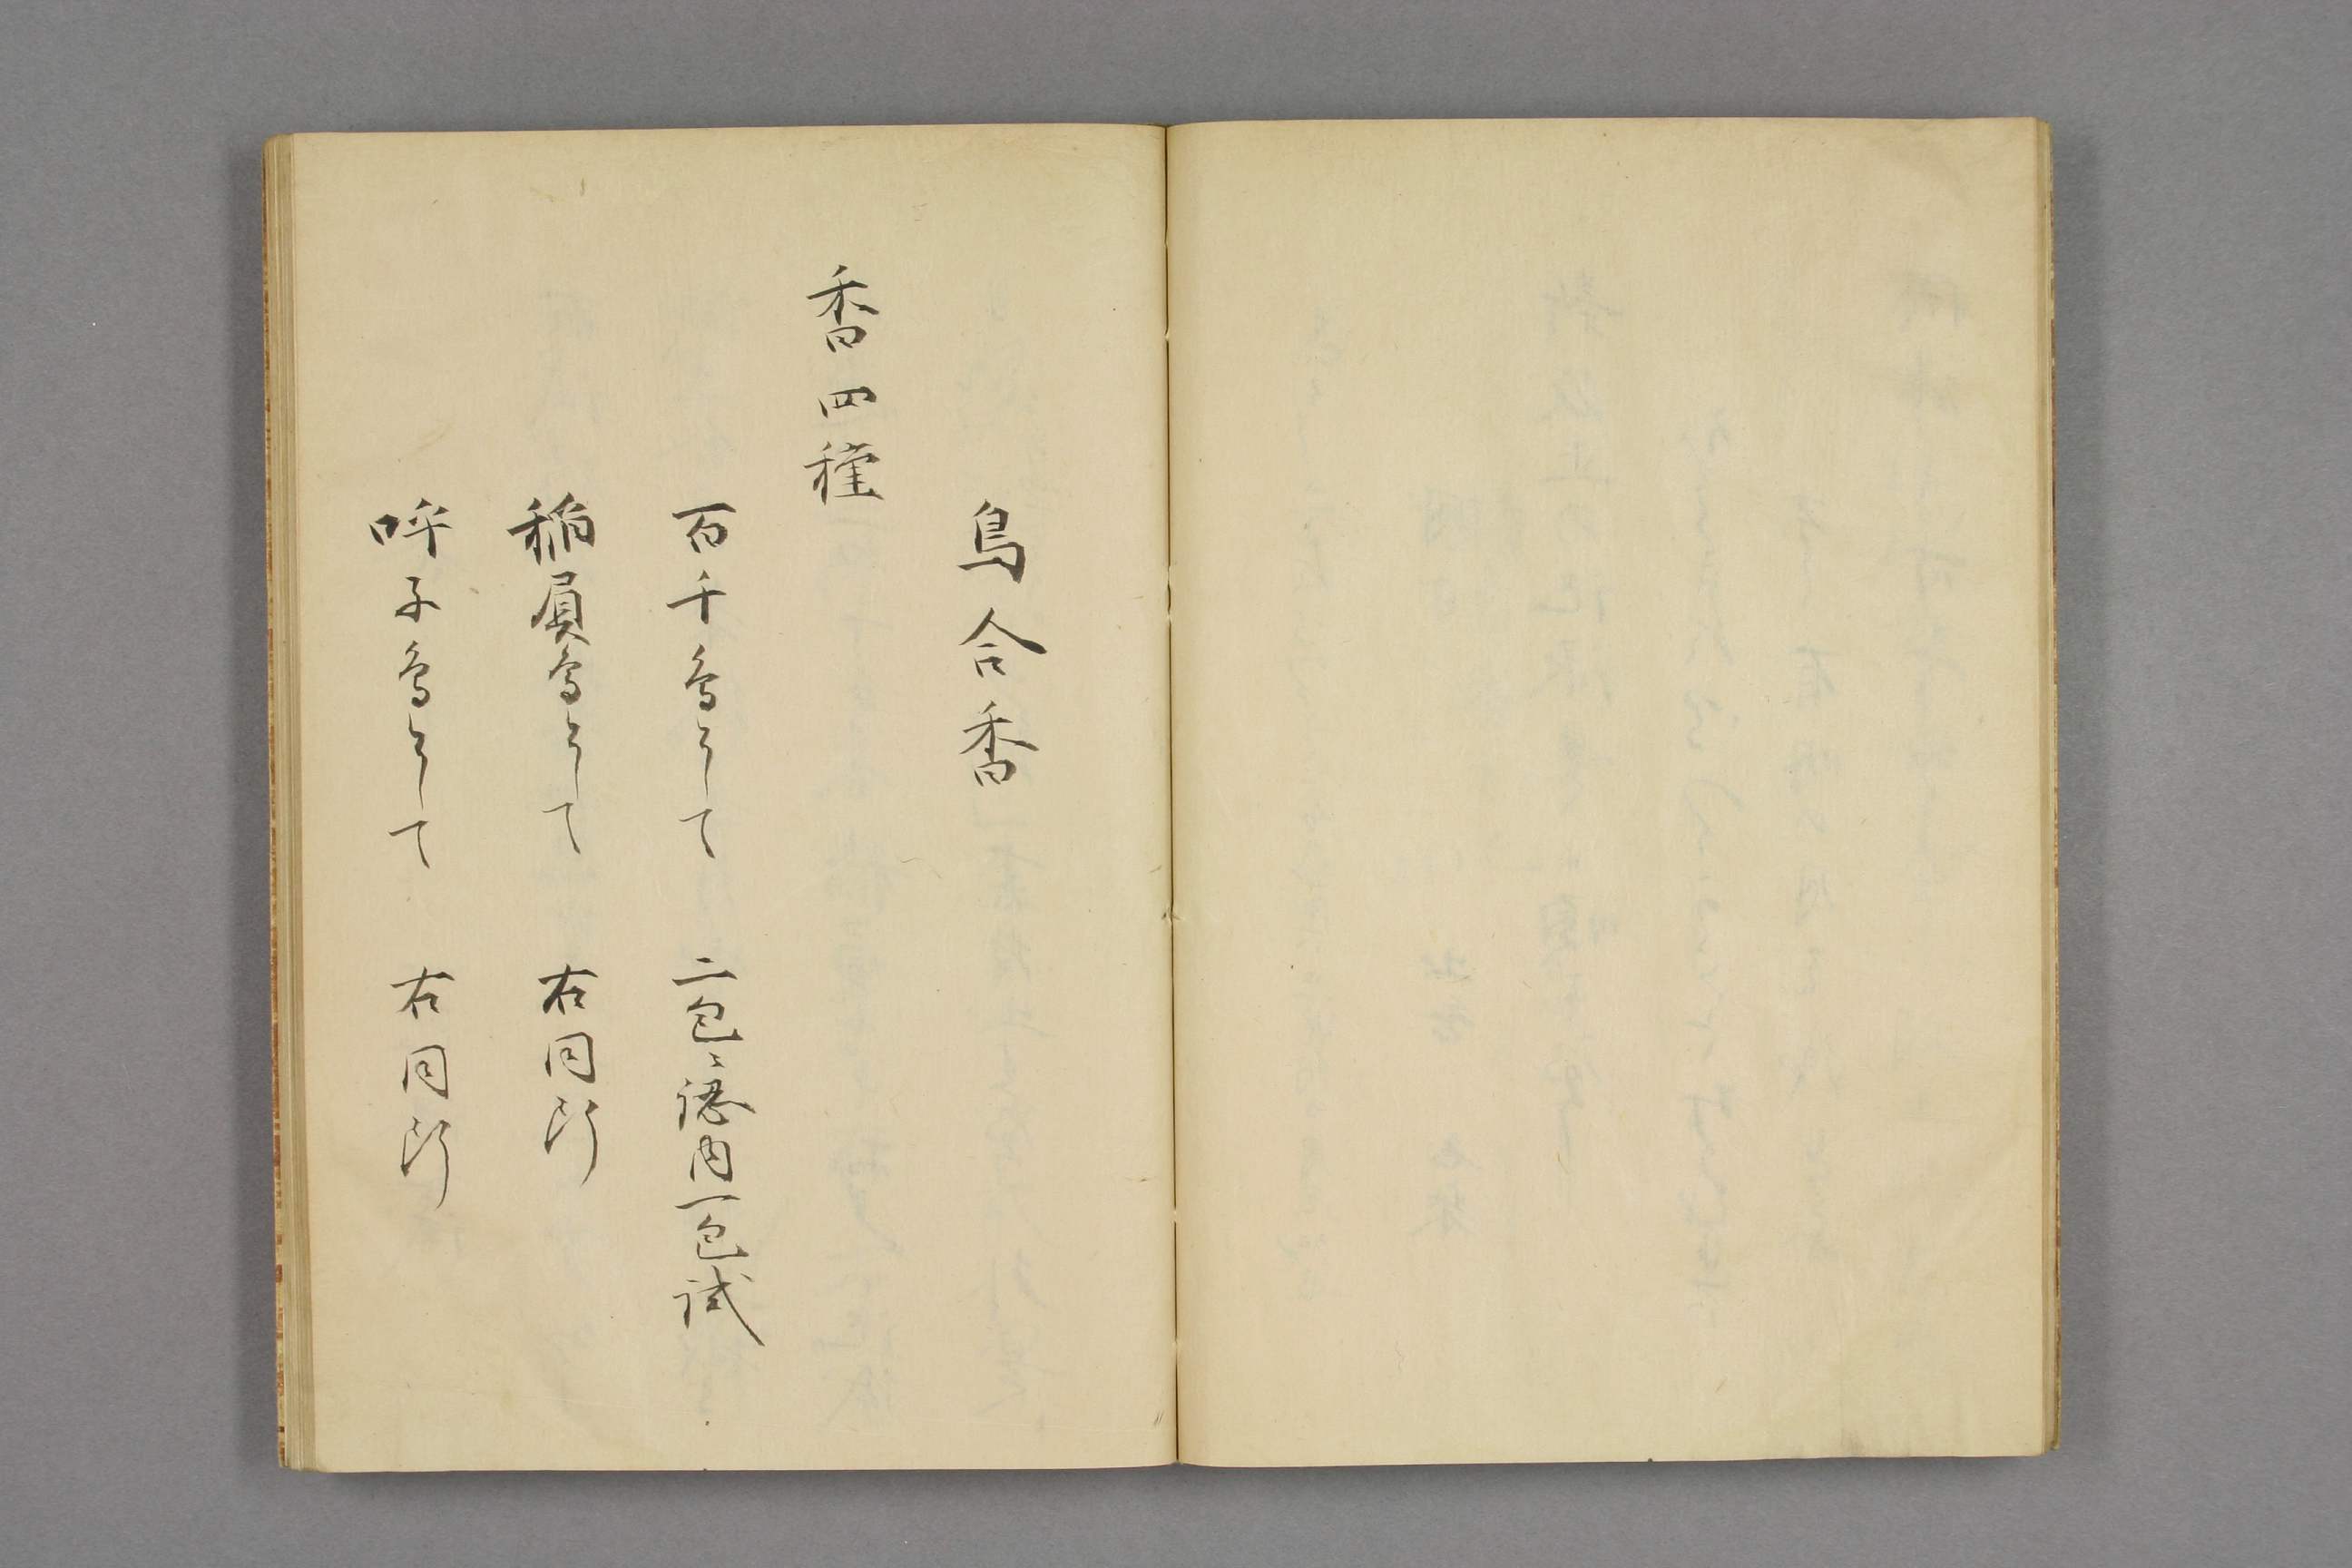 鳥合香
香四種
百千鳥として 二包ミ認内一包試
稲屓鳥として 右同断
呼子鳥として 右同断